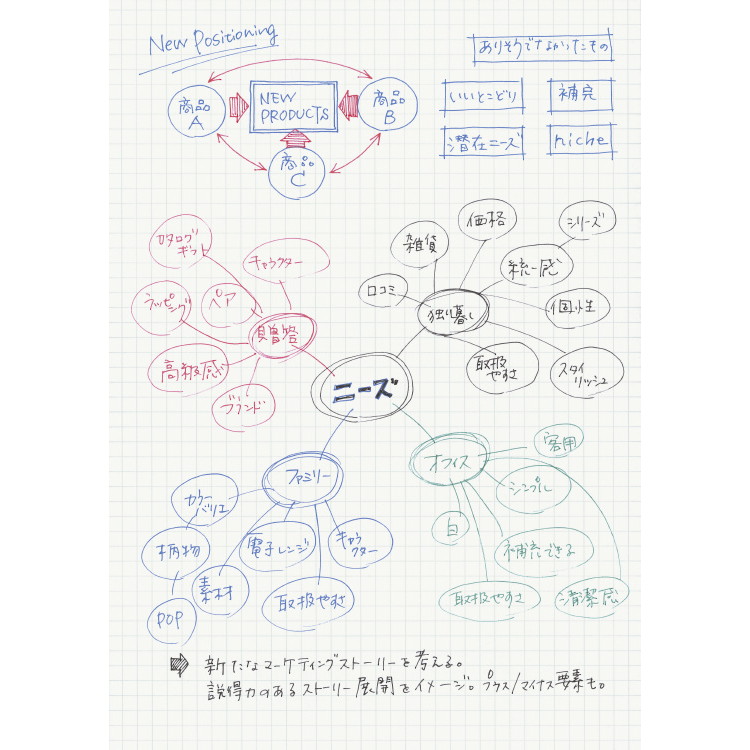 New Positioning
ありそうでなかったもの
商品
A
NEW
PRODUCTS
商品
B
商品
C
いいとこどり
補完
潜在ニーズ
niche
カタログ
ギフト
キャラクター
ラッピング
ペア
贈答
高級感
ブランド
雑貨
価格
シリーズ
口コミ
統一感
独り暮し
個性
取扱
やすさ
スタイ
リッシュ
ニーズ
ファミリー
カラー
バリエ
柄物
POP
素材
電子レンジ
取扱やすさ
キャラ
クター
オフィス
客用
シンプル
白
補充できる
取扱やすさ
清潔感
新たなマーケティングストーリーを考える。
説得力のあるストーリー展開をイメージ。プラス/マイナス要素も。